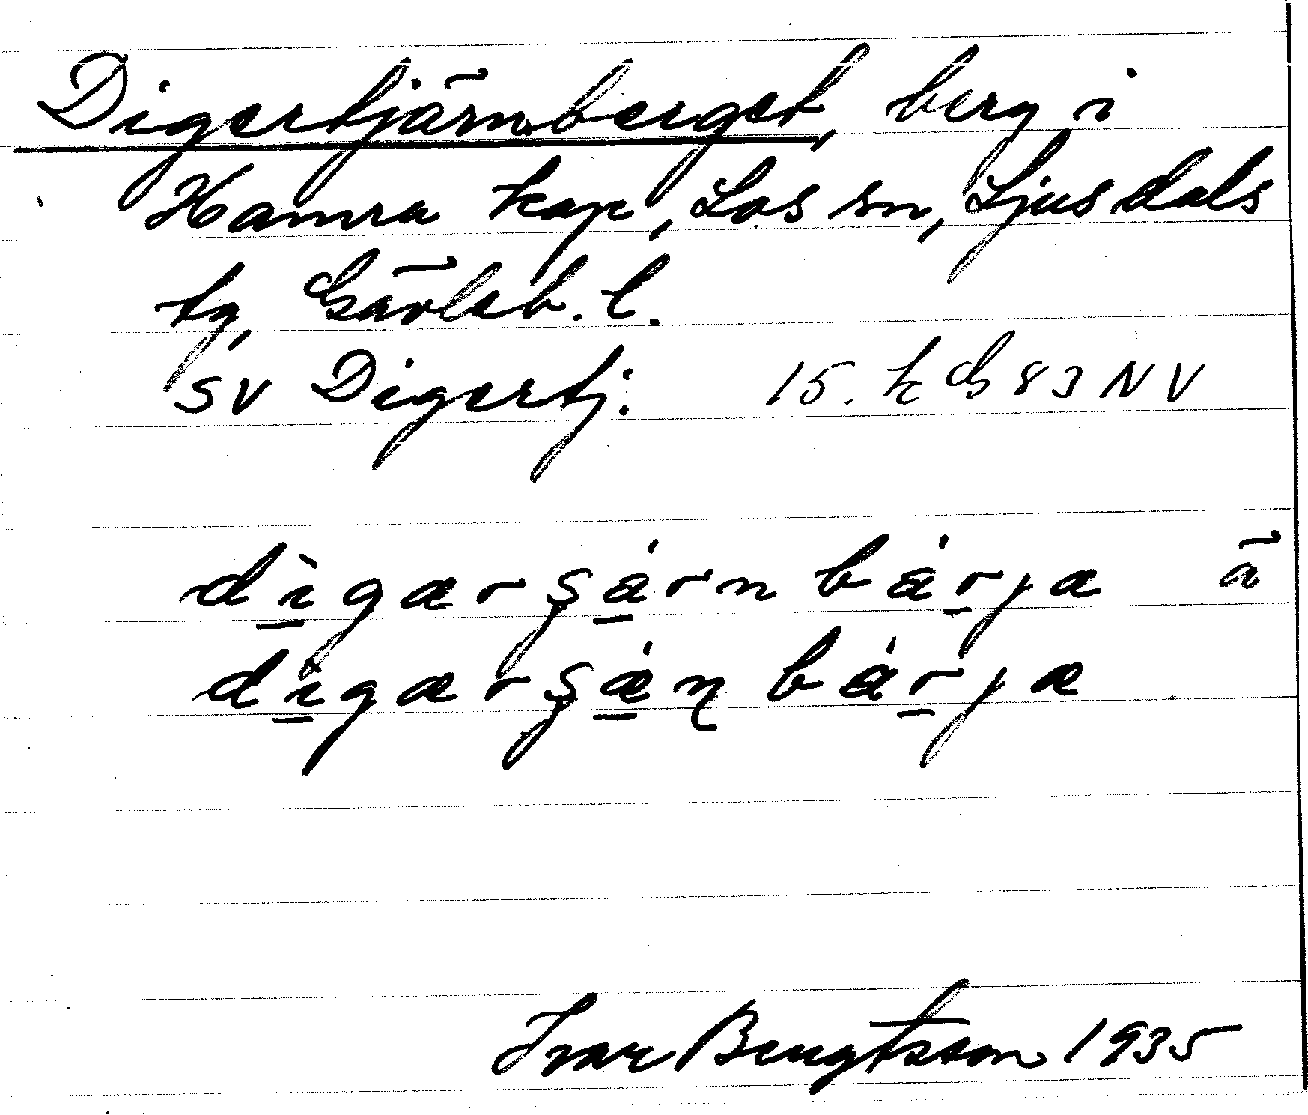 Digertjärnberget, berg i
Hamra kap, Los sn, Ljusdals
tg, Gävleb. l.
SV Digertj. 15. k G 83 NV
dì̱gærşá̱rn bá̱rjæ ā
dì̱gærşǽ̱ɳ bá̱rjæ
Ivar Bengtsson 1935